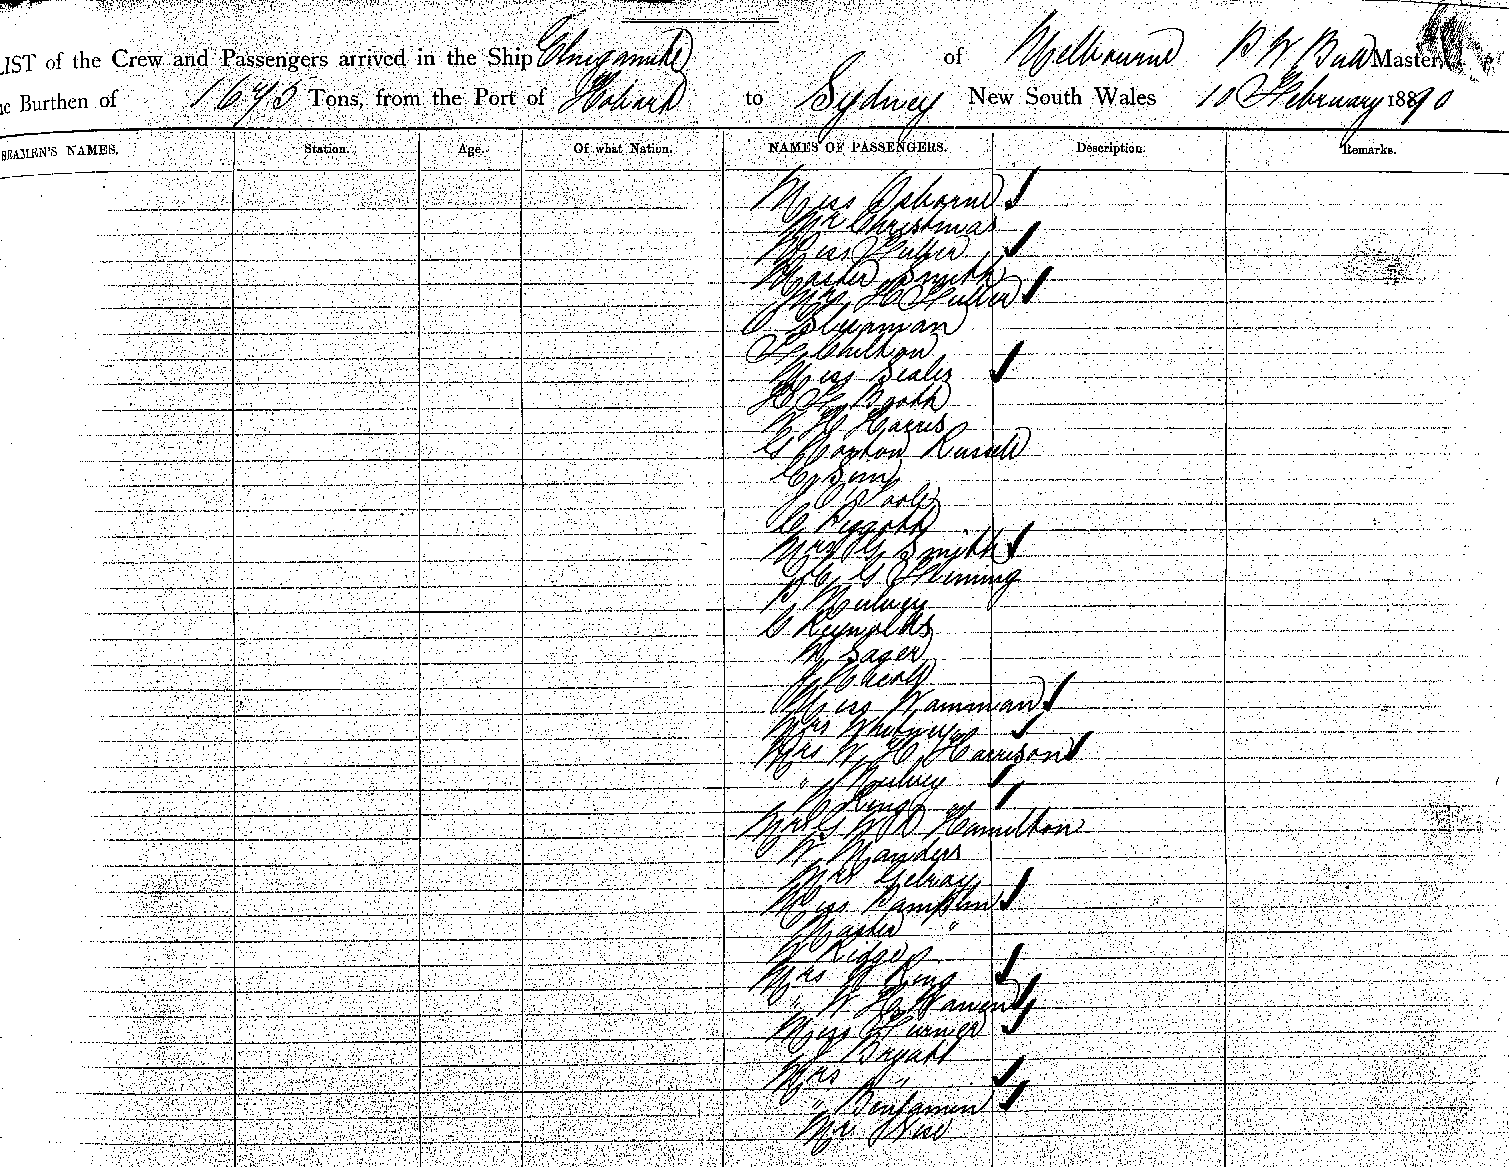 LIST of the Crew and Passengers arrived in the Ship Elingamite of Melbourne Master,
Burthen of 1675 Tons, from the Port of Hobart to Sydney New South Wales 10 February 1890
SEAMEN'S NAMES. Station. Age. Of what Nation. NAMES OF PASSENGERS. Description. Remarks.
Miss Osborne
Mr Christmas
Miss Fuller
Master Smith
H Fuller
Sleepman
Miss Scales
H H Booth
W H Harris
G Morton Russell
C Sim
J O'Toole
C Piggott
Mrs G Smith
G Fleming
P Mulvey
G Reynolds
M Sager
Miss Wamman
Mrs Whitney
Mrs W H Harrison
" Mulvey
King
Mrs G W R Hamilton
W Manders
Mrs Gilray
Miss Pamplin
Master "
W Ridge
Mrs W King
" W H Warren
Miss Turner
Bryant
Mrs "
" Benjamin
Mr Wise